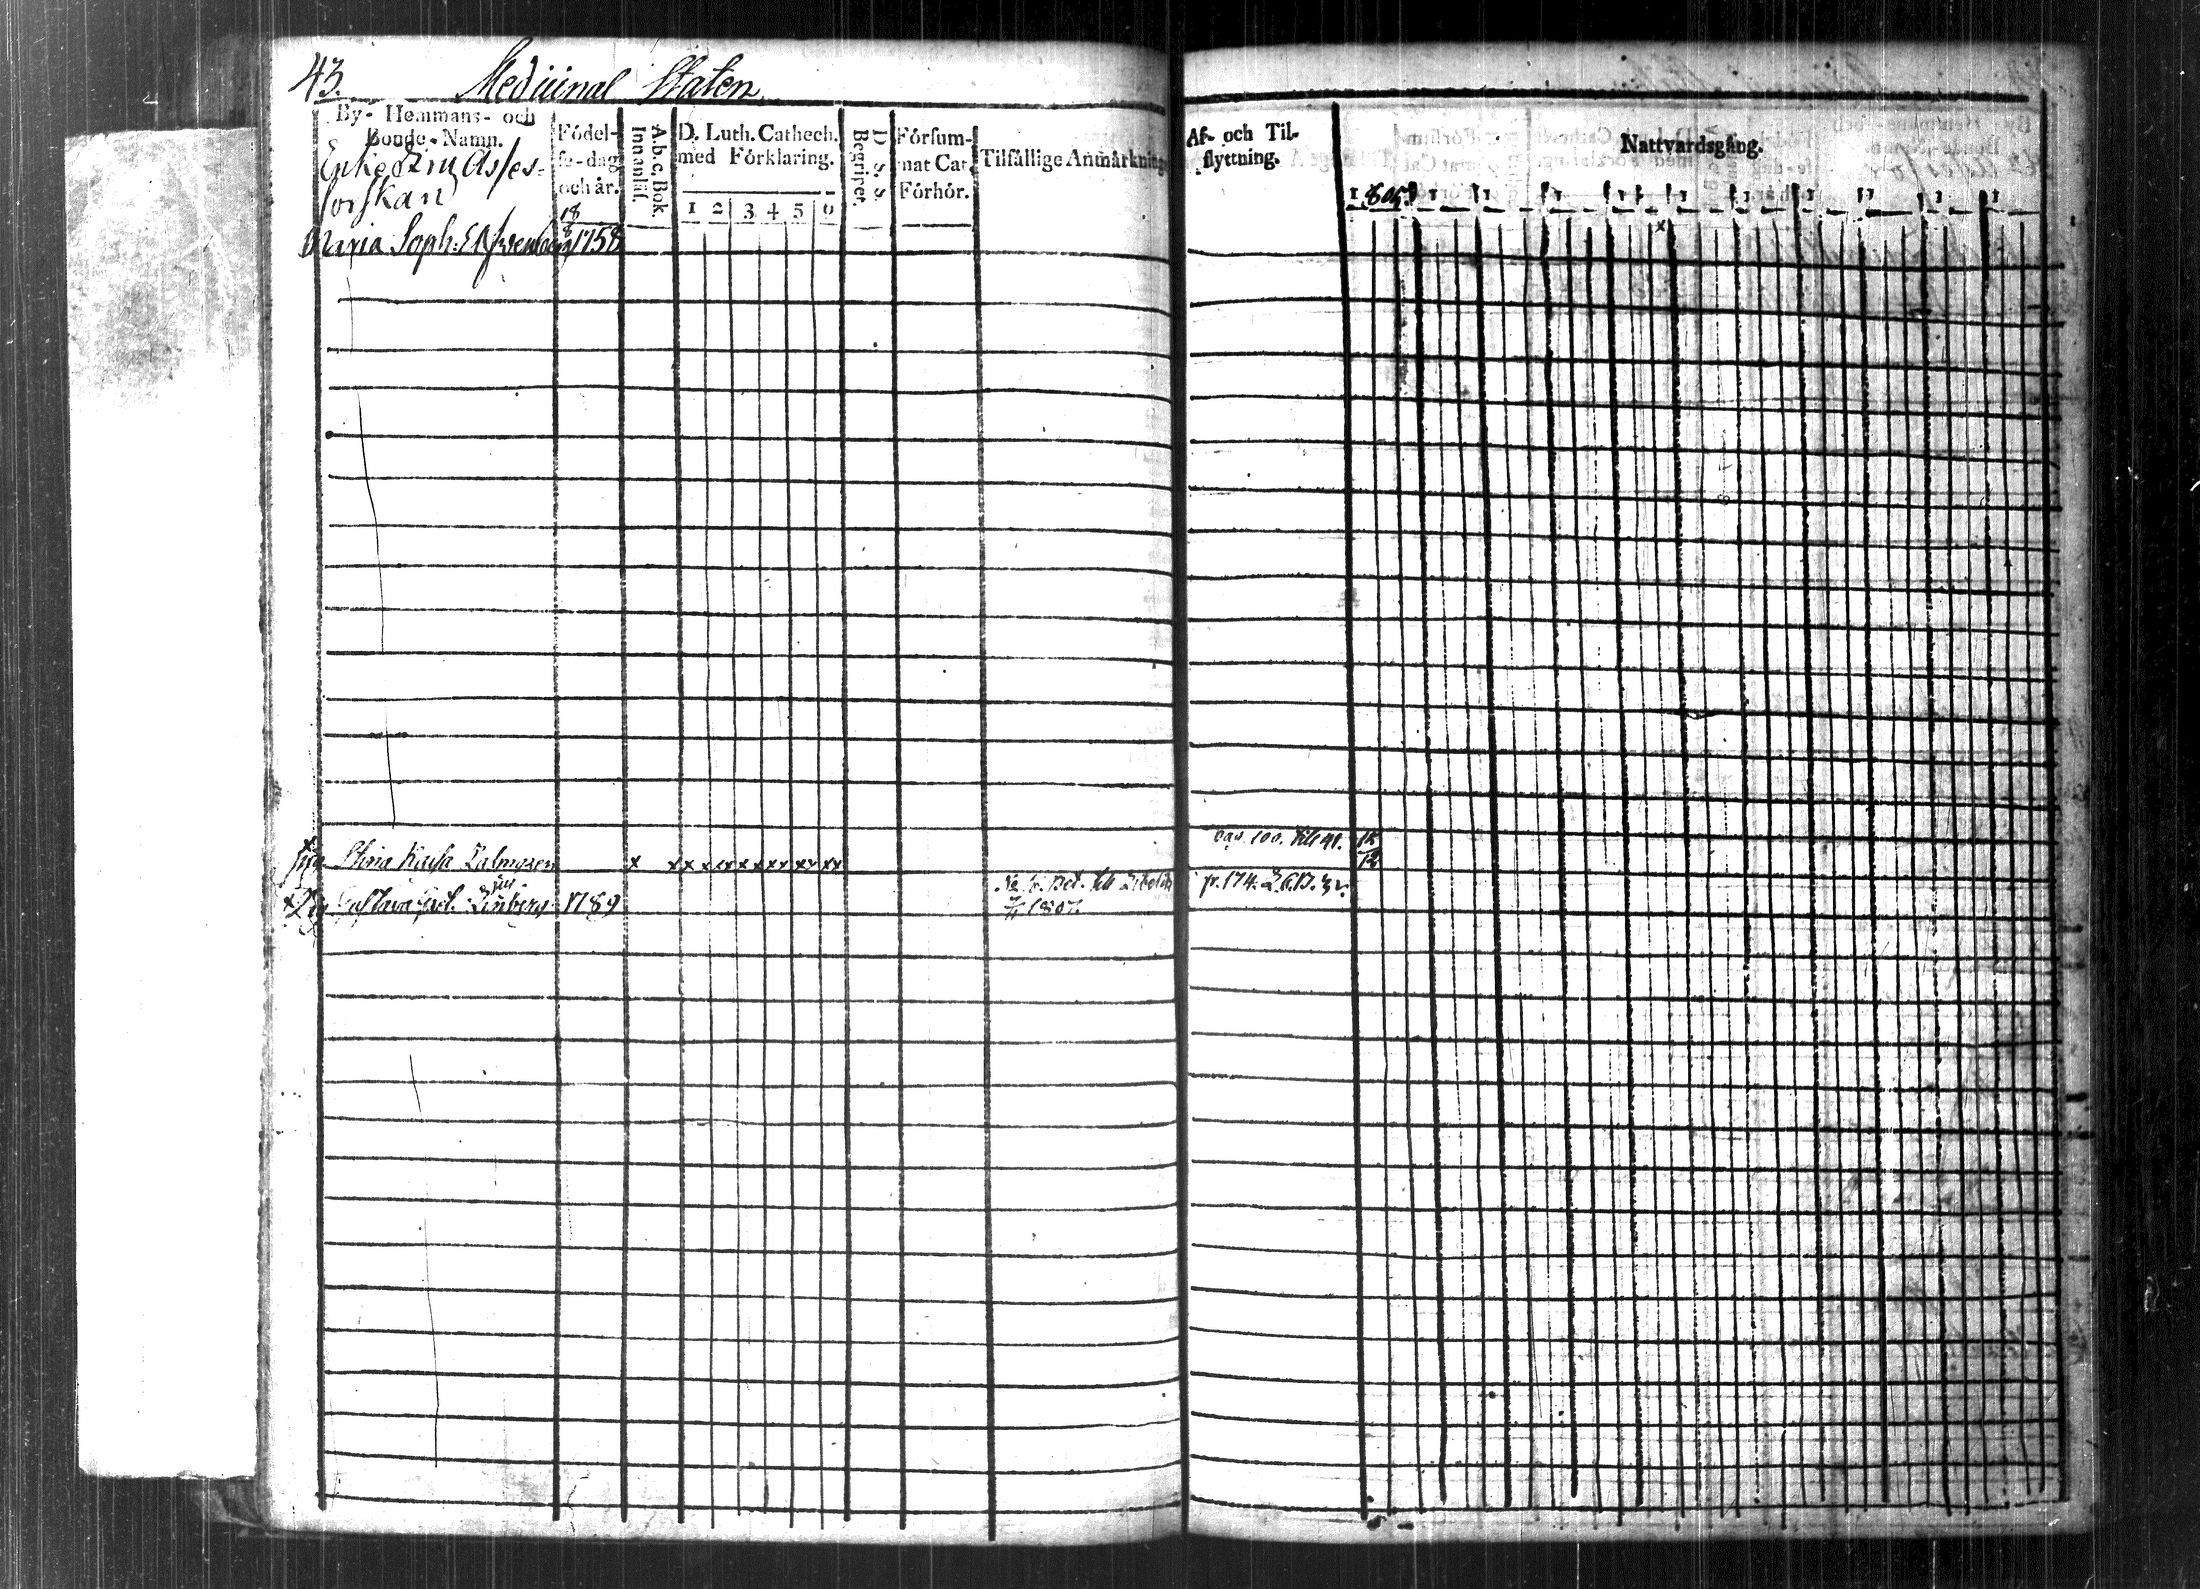 43.
Medicinal Staten
By- Hemmans- och
Bonde-Namn.
Fódel-
se-dag
och år.
A.b.c, Bok.
Innanläs.
D. Luth. Cathech.
med Fórklaring.
1 2 3 4 5 6
D. S. S.
Begripet.
Fórsum-
nat Cat.
Fórhór.
Tilfällige Anmärkning
Enkefru Asses-
sorskan
Maria Soph: 18/8 1758
Stina Kajsa x x x x x x x x x x x
Gustava 1789
1807.
Af- och Til-
flyttning.
Nattvardsgång.
1805
pag. 100. till 41. 15/12
fr. 174.